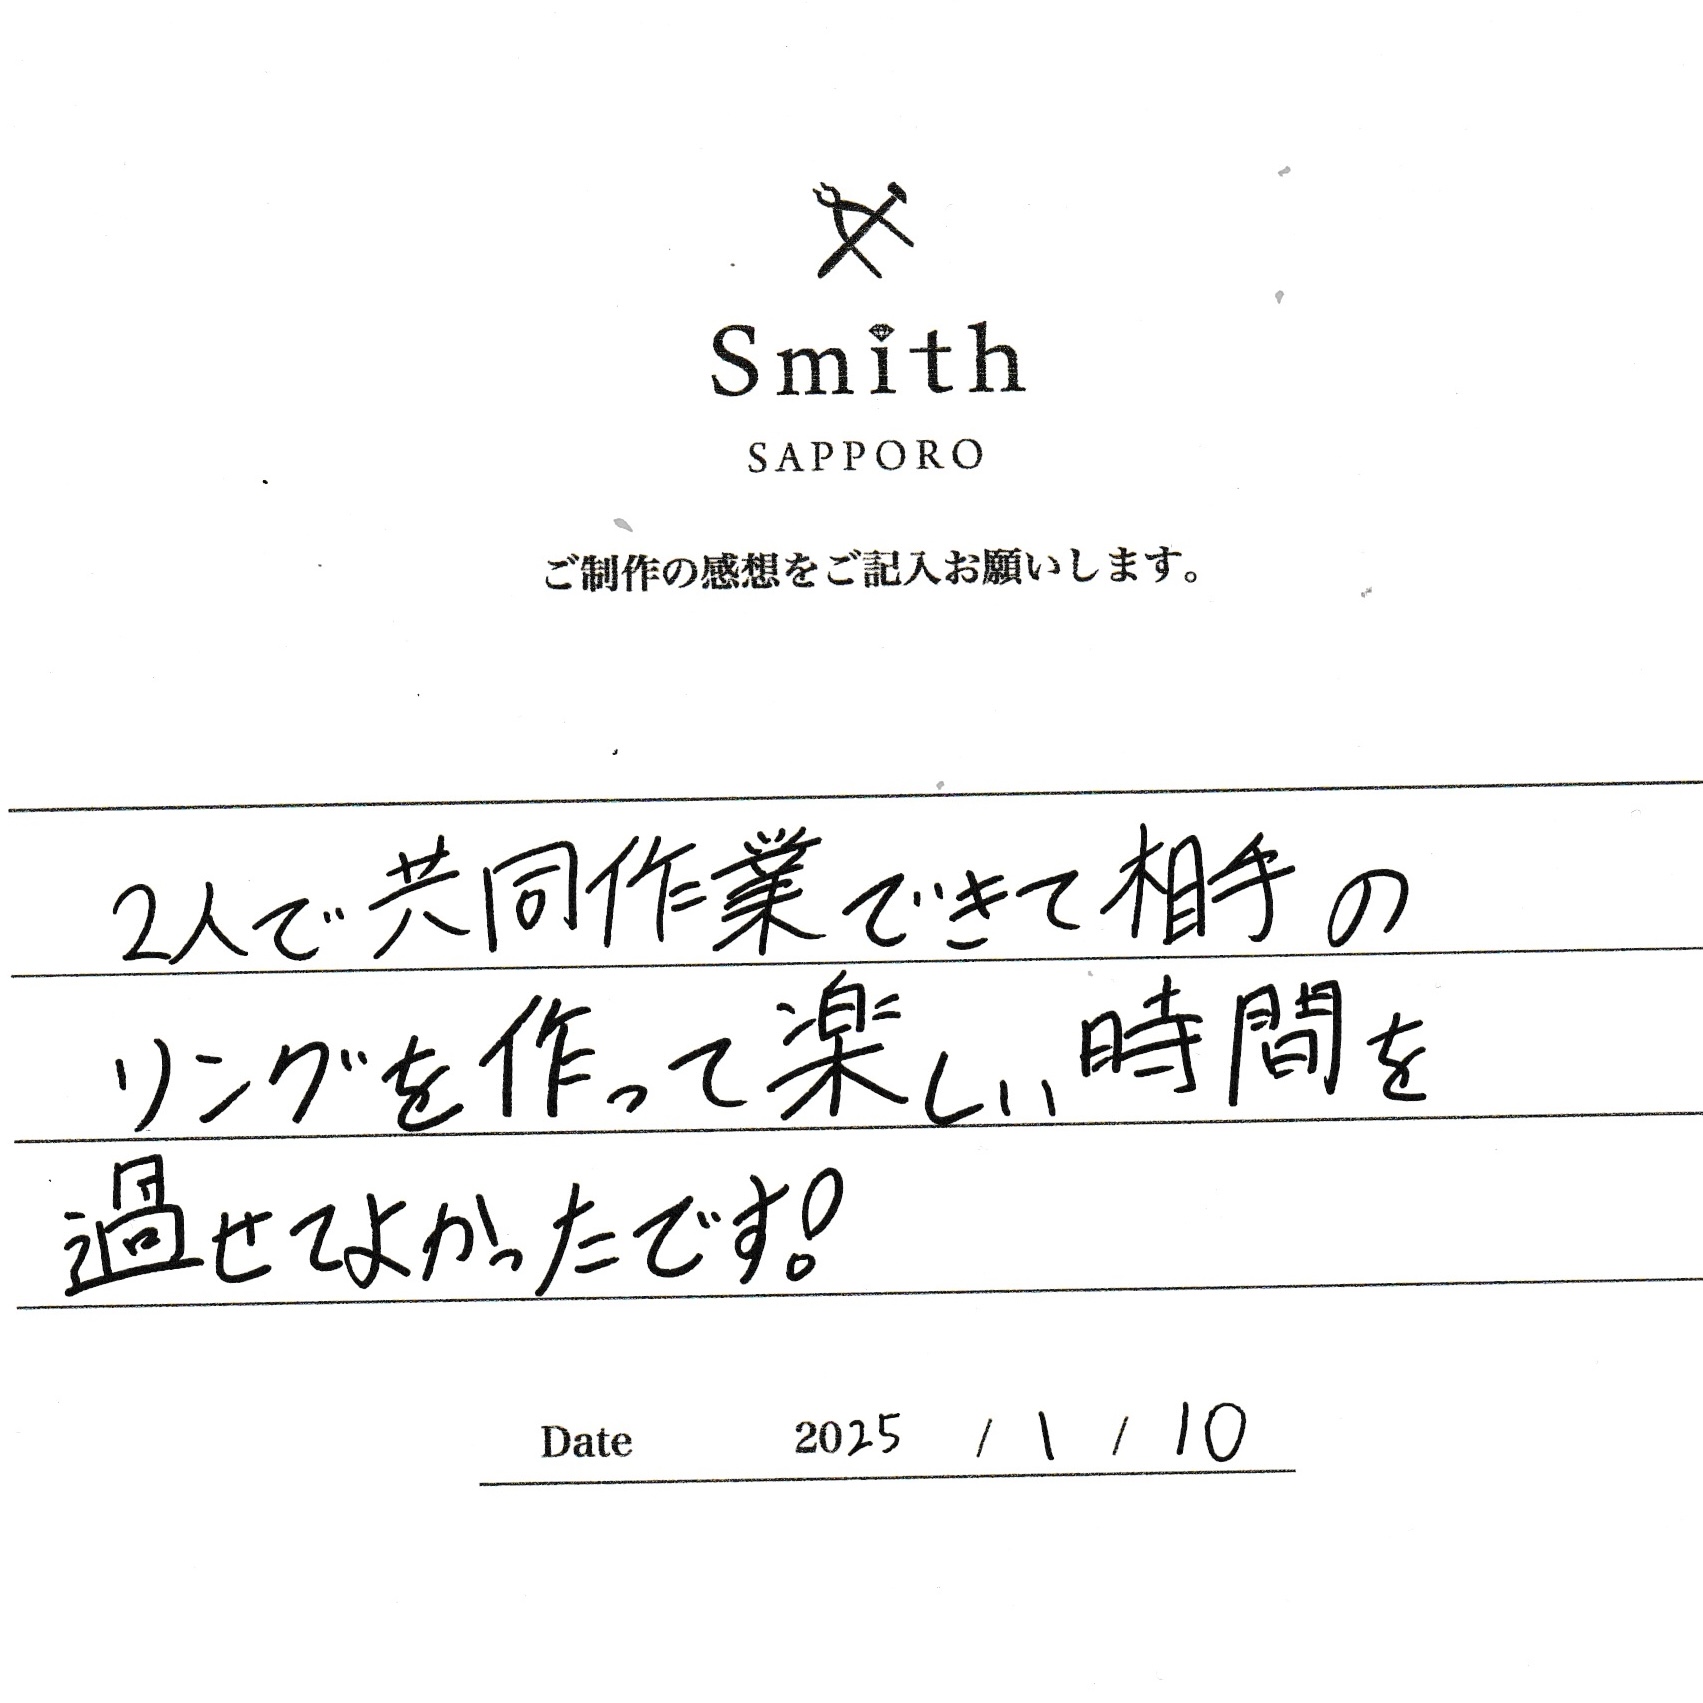 Smith
SAPPORO
ご制作の感想をご記入お願いします。
2人で共同作業できて相手の
リングを作って楽しい時間を
過せてよかったです!
Date 2025 / 1 / 10